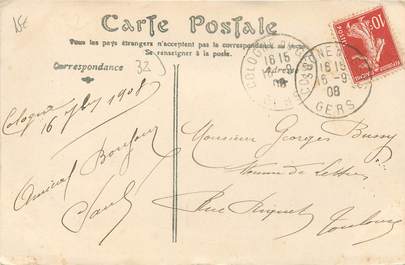 15€
Carte Postale
Tous les pays étrangers n'acceptent pas la correspondance au recto
Se renseigner à la poste.
Correspondance
32
Adresse
COLOGNE
16 15
16-9
08
GERS
COLOGNE
16 15
16-9
08
GERS
10
Cologne
16 7bre 1908
Amical Bonjour
Paul
Monsieur Georges Bussy
Homme de Lettres
Rue Riquet
Toulouse